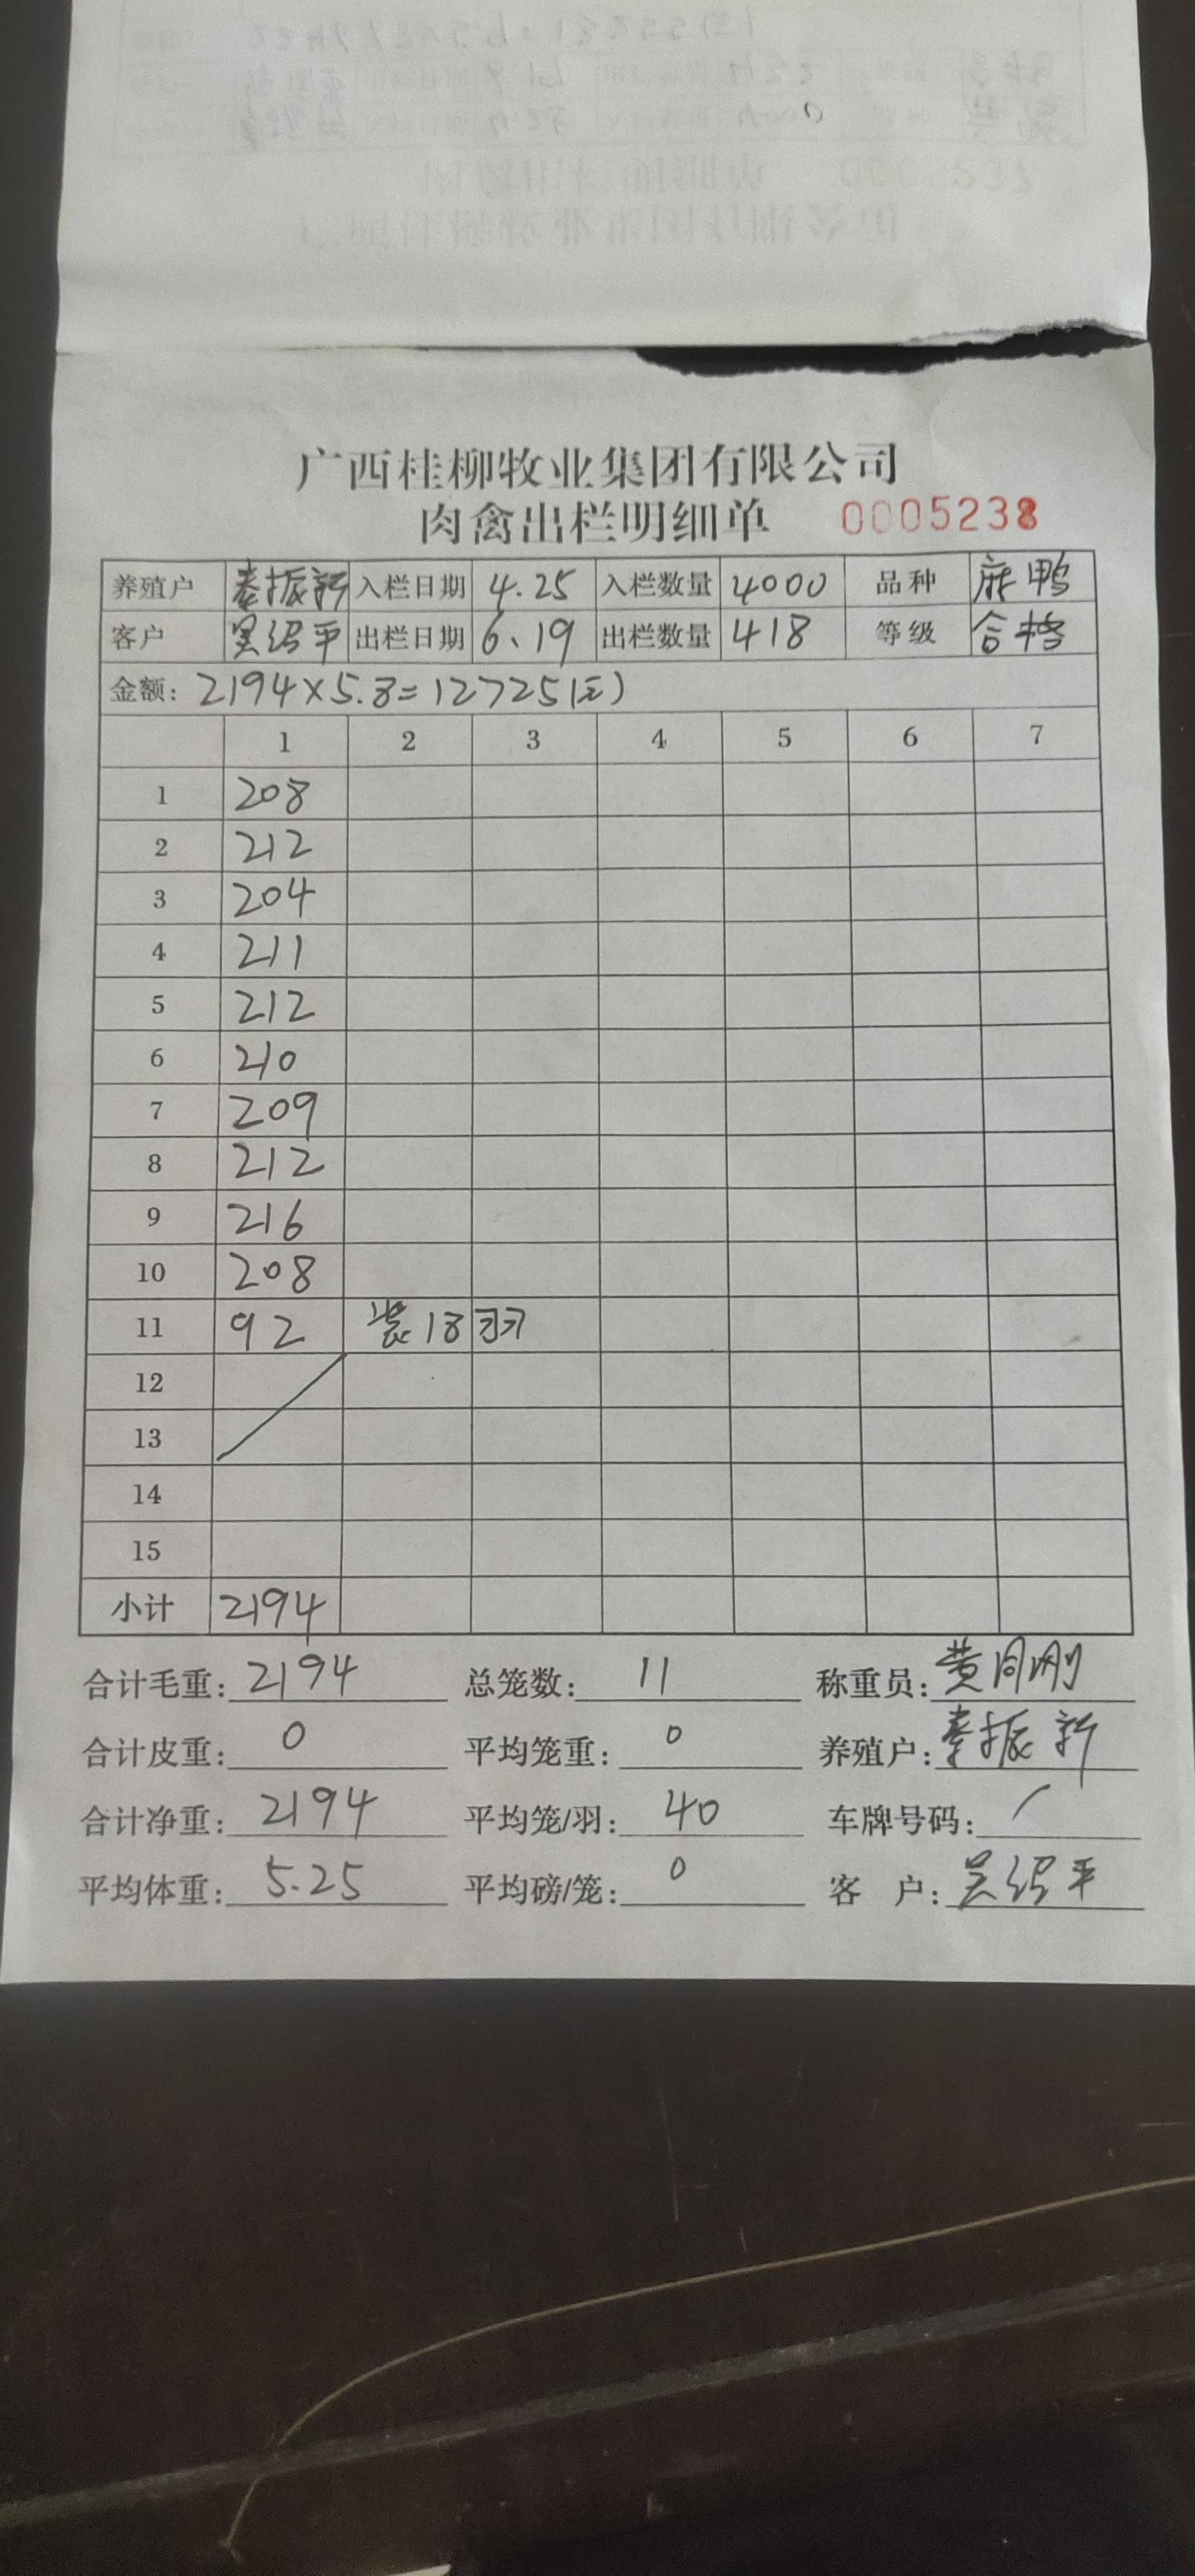 广西桂柳牧业集团有限公司
肉禽出栏明细单 0005238
养殖户 秦振新 入栏日期 4.25 入栏数量 4000 品种 麻鸭
客户 吴绍平 出栏日期 6、19 出栏数量 418 等级 合格
金额: 2194×5.8=12725(元)
1 2 3 4 5 6 7
1 208
2 212
3 204
4 211
5 212
6 210
7 209
8 212
9 216
10 208
11 92 装18羽
12
13
14
15
小计 2194
合计毛重: 2194 总笼数: 11 称重员: 黄同刚
合计皮重: 0 平均笼重: 0 养殖户: 秦振新
合计净重: 2194 平均笼/羽: 40 车牌号码: /
平均体重: 5.25 平均磅/笼: 0 客户: 吴绍平